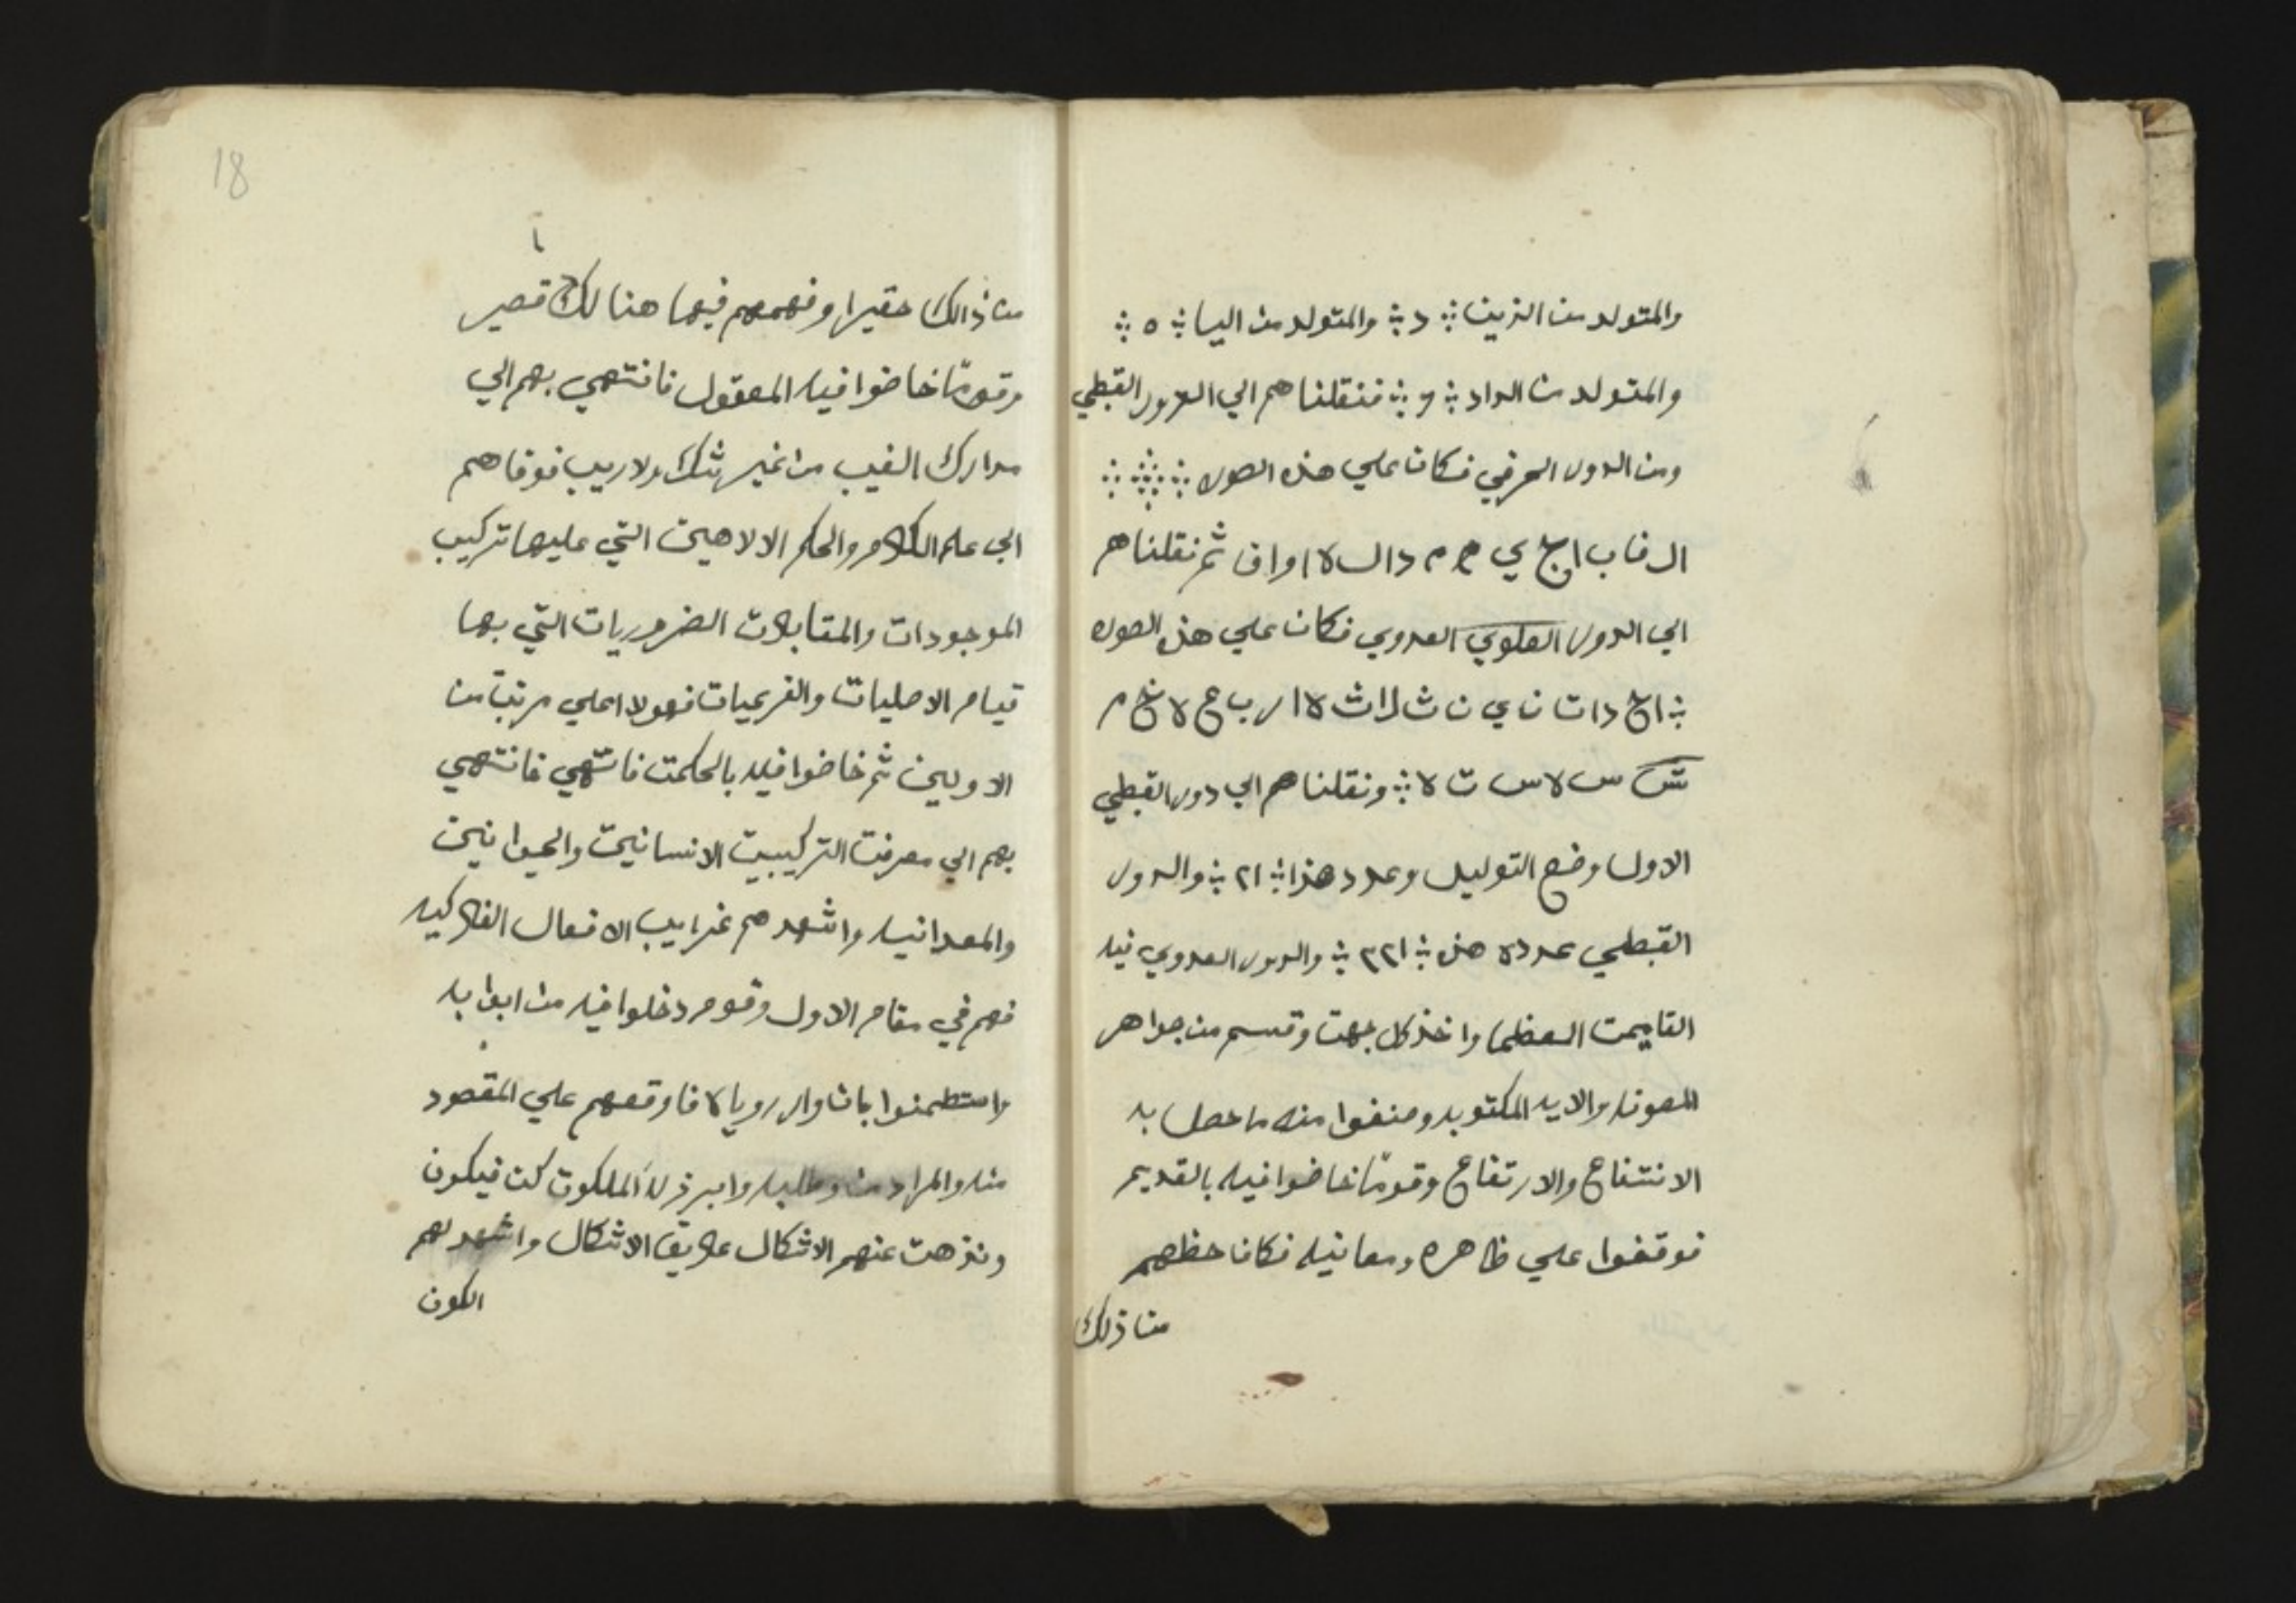 والمتولد من الزين ؞ د ؞ والمتولد من اليا ؞ ه ؞
والمتولد من الواد ؞ و ؞ فنقلناهم الي الدور القبطي
ومن الدور الحرفي فكان علي هذه الصوره
ال ف ا ب ا ج ي م م د ا ل ه ا و ا ن ثم نقلناهم
الي الدور العلوي العددي فكان علي هذه الصوره
ا ح د ا ث ن ي ن ث ل ا ث ه ا ر ب ع ه خ م
س س ه س ت ه ؞ ونقلناهم الي دور القبطي
الاول وضع التوليل وعدد هذا ؞ ٢١ ؞ والدور
القبطي عدده هذه ؞ ٢٢١ ؞ والدور العددي فيه
القايمت العظما واخذ كل جهت وقسم من جواهر
المصونه والايه المكتوبه وصنفوا منه ما حصل به
الانتفاع والارتفاع وقومًا خاضوا فيه بالقديم
فوقفوا علي ظاهره ومعانيه فكان حظهم
من ذلك
18
من ذالك حقيرا وفهمهم فيها هنالك قصير
وقومًا خاضوا فيه المعقول فانتهي بهم الي
مدارك الغيب من غير شك ولا ريب فوفاهم
الي علم الكلام والحكم الالاهيت التي عليها تركيب
الموجودات والمقابلات الضروريات التي بها
قيام الاصليات والفرعيات فهولا اعلي مرتبت من
الاوليين ثم خاضوا فيه بالحكمت فانتهي فانتهي
بهم الي معرفت التركيبيت الانسانيت والحيوانيت
والمعدانيه واشهدهم غرايب الافعال الفلاكيه
فهم في مقام الاول وقوم دخلوا فيه من ابوابه
واستطمنوا بانوار روياه فاوقعهم علي المقصود
منه والمراد من وطلبه وابرز له الملكوت كن فيكون
ونزهت عنهم الاشكال علايق الاشكال واشهد لهم
الكون